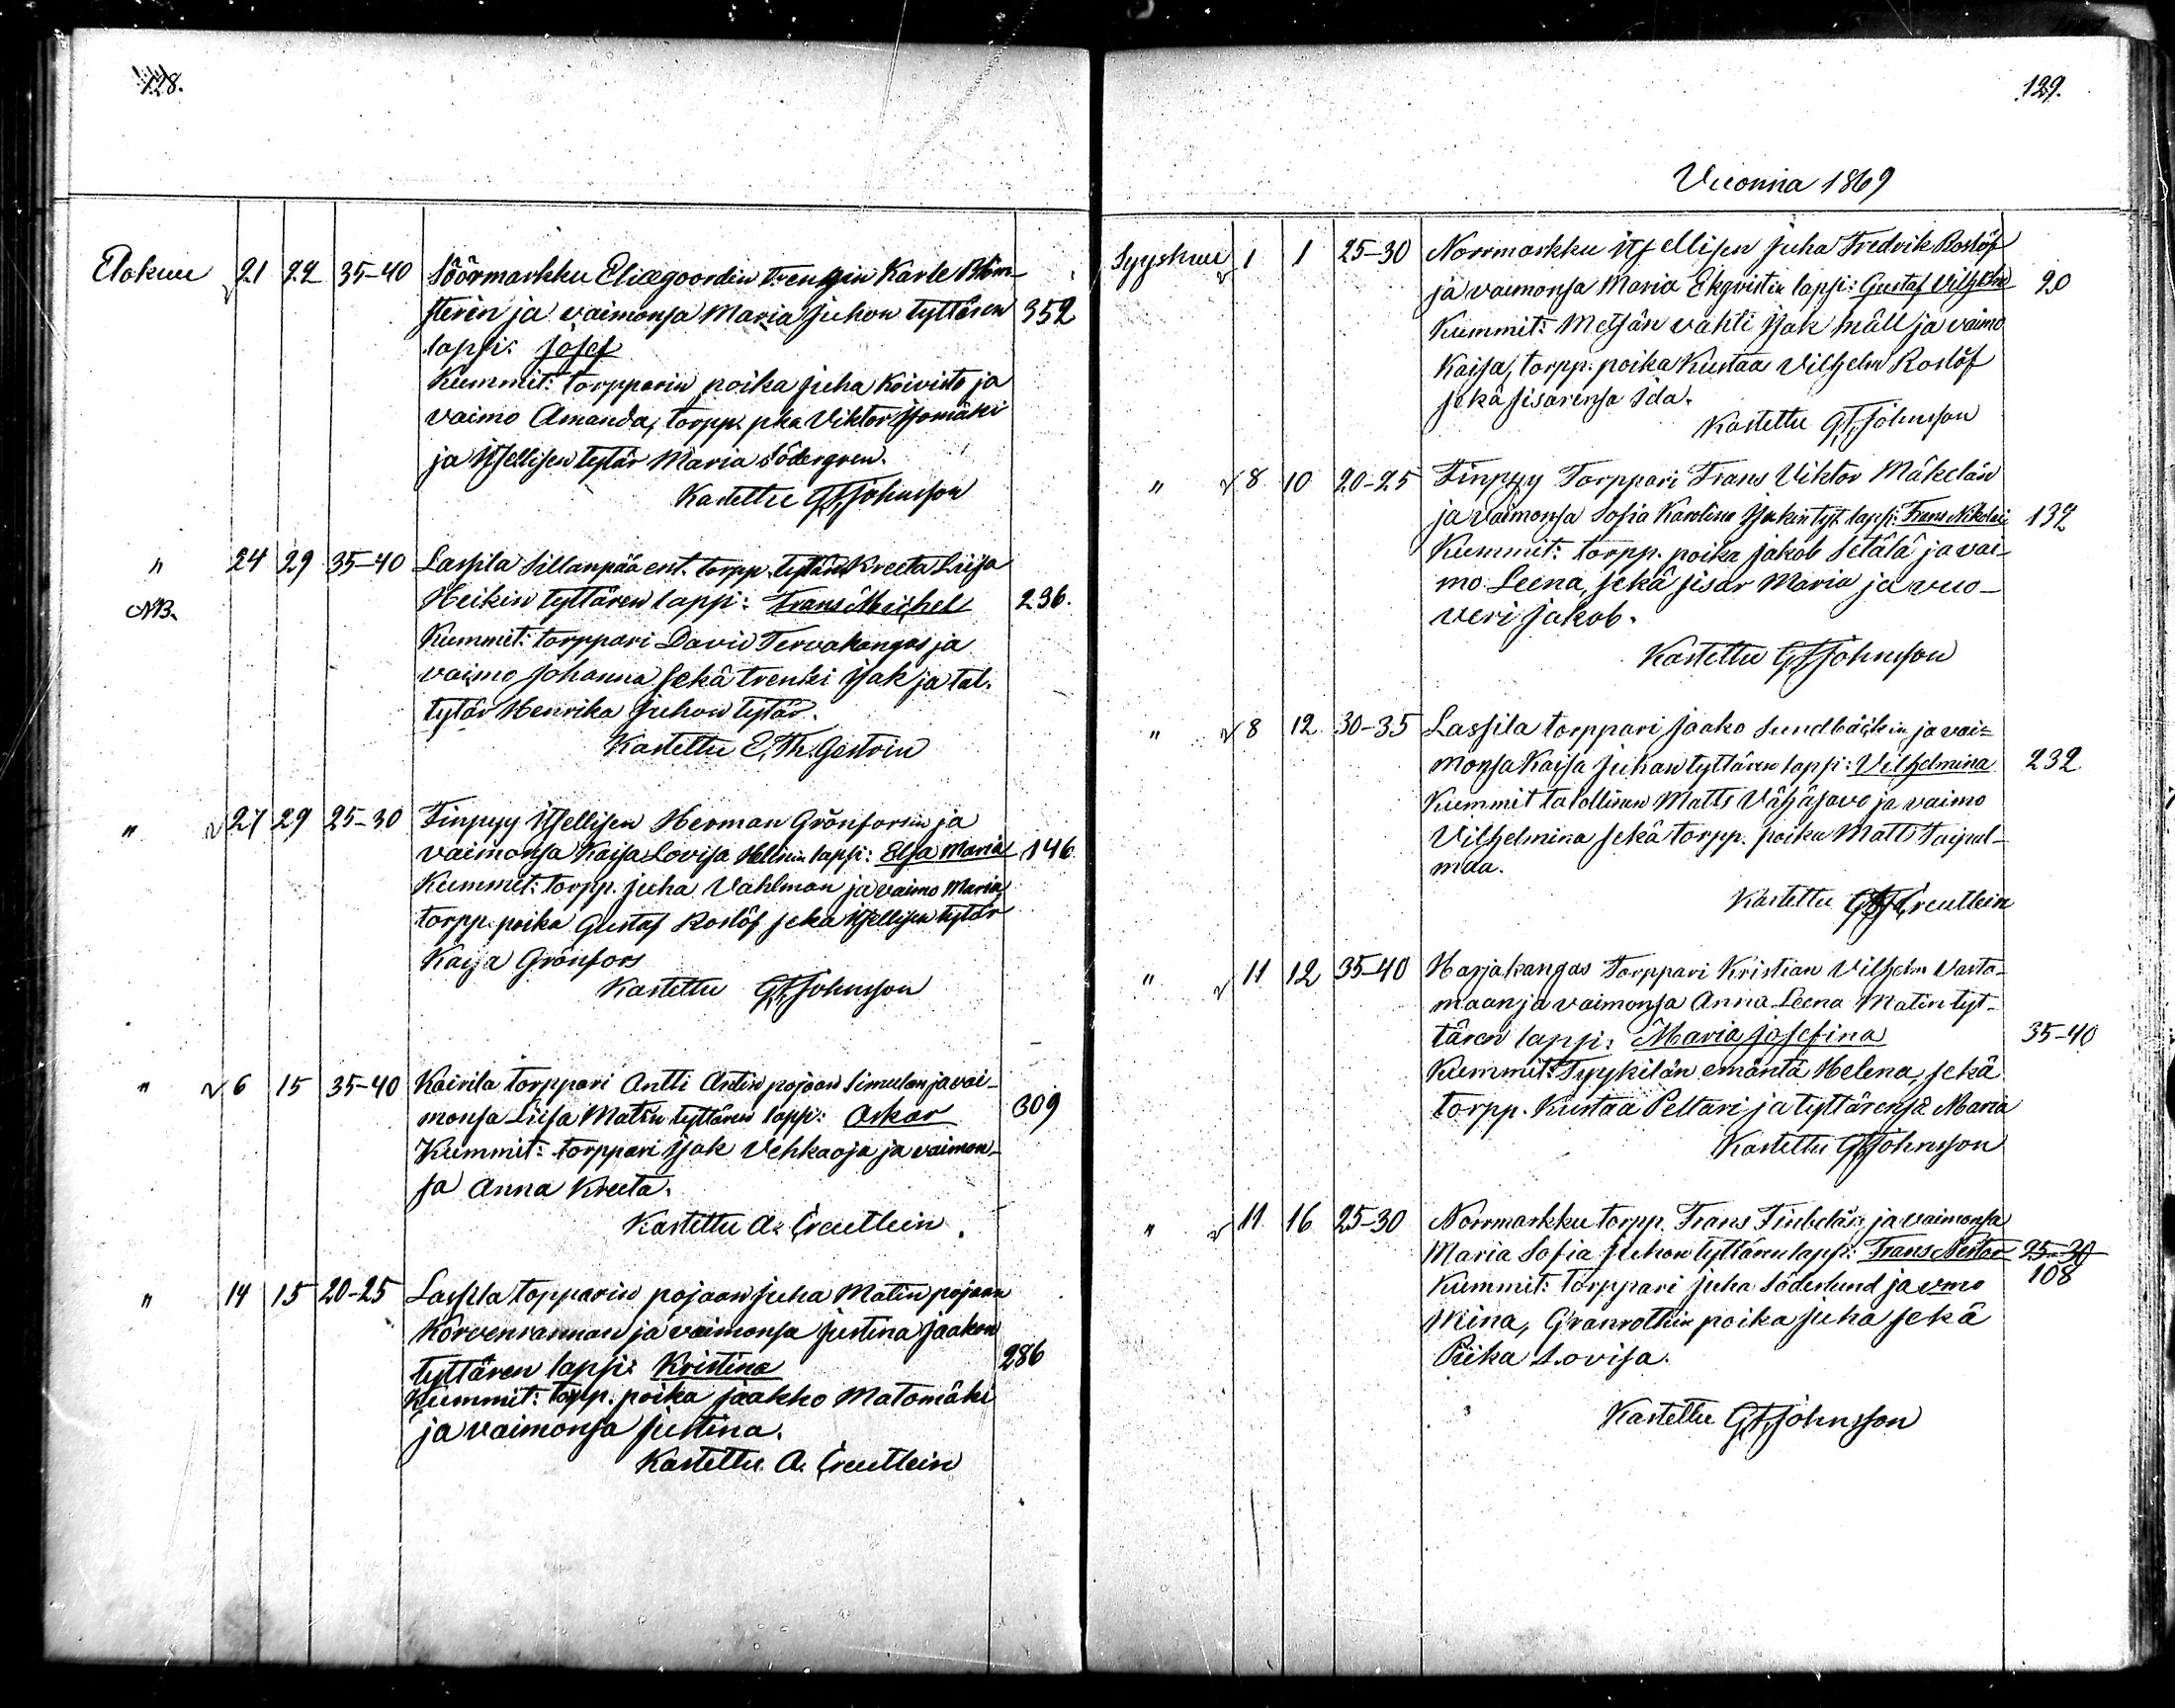 128.
Elokuu 21 22 35-40 Söörmarkku Eliægoordin trengin Karle Blom-
sterin ja vaimonsa Maria Juhon tyttären 352
lapsi: Josef
Kummit: torpparin poika Juha Koivisto ja
vaimo Amanda, torpp. pka Viktor Isomäki
ja Itsellisen tytär Maria Södergren.
Kastettu G.F. Johnsson
" 24 29 35-40 Lassila Sillanpää ent. torpp. tytären Kreeta Liisa
NB. Heikin tyttären lapsi: Frans Michel 236.
Kummit: torppari David Tervakangas ja
vaimo Johanna sekä trenki Isak ja tal.
tytär Henrika Juhon tytär.
Kastettu E. Th. Gestrin
" 27 29 25-30 Finpyy Itsellisen Herman Grönforsin ja
vaimonsa Kaisa Lovisa Hellmin lapsi: Elsa Maria 146
Kummit: torpp. Juha Vahlman ja vaimo Maria,
torpp. poika Gustaf Roslöf sekä itsellisen tytär
Kaisa Grönfors
Kastettu G.F. Johnsson
" 6 15 35-40 Kairila torppari Antti Antin pojaan Simulan ja vai-
monsa Liisa Matin tyttären laps: Oskar 309
Kummit: torppari Isak Vehkaoja ja vaimon-
sa Anna Kreeta.
Kastettu A. Creutlein.
" 14 15 20-25 Lassila topparin pojaan Juha Matin pojaan
Korvenrannan ja vaimonsa Justina Jaakon
tyttären lapsi: Kristina 286
Kummit: topp. poika Jaakko Matomäki
ja vaimonsa Justina.
Kastettu A. Creutlein
129.
Vuonna 1869
Syyskuu 1 1 25-30 Norrmarkku Itsellisen Juha Fredrik Roslöf
ja vaimonsa Maria Ekqvistin lapsi: Gustaf Vilhelm 20
Kummit: Metsän vahti Isak Mäll ja vaimo
Kaisa, torpp. poika Kustaa Vilhelm Roslöf
sekä sisarensa Ida.
Kastettu G.F. Johnsson
" 8 10 20-25 Finpyy Torppari Frans Viktor Mäkelän
ja vaimonsa Sofia Karolina Isakin tyt. lapsi: Frans Nikolai 132
Kummit: torpp. poika Jakob Setälä ja vai-
mo Leena, sekä sisar Maria ja vuo-
veri Jakob.
Kastettu G.F. Johnsson
" 8 12 30-35 Lassila torppari Jaako Sundbäckin ja vai-
monsa Kaisa Juhan tyttären lapsi: Vilhelmina 232
Kummit talollinen Matts Vähäsavo ja vaimo
Vilhelmina sekä torpp. poika Matts Taipal-
maa.
Kastettu Creutlein
" 11 12 35-40 Harjakangas Torppari Kristian Vilhelm Varta-
maan ja vaimonsa Anna Leena Matin tyt-
tären lapsi: Maria Josefina 35-40
Kummit: Tyykilän emäntä Helena, sekä
torpp. Kustaa Peltari ja tyttärensä Maria
Kastettu G.F. Johnsson
" 11 16 25-30 Norrmarkku torpp. Frans ja vaimonsa
Maria Sofia Juhon tyttären laps: Frans Nestor 25-30
Kummit: Torppari Juha Söderlund ja vmo 108
Mina, Granrothin poika Juha sekä
Piika Lovisa.
Kastettu G.F. Johnsson